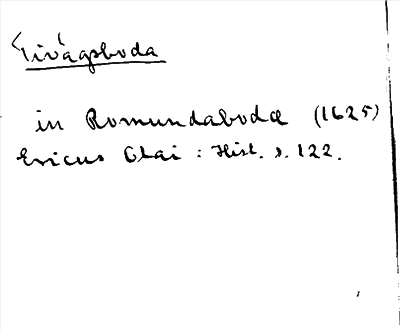 Tivägsboda
in Romundabodæ (1625)
Ericus Olai : Hist. s. 122.